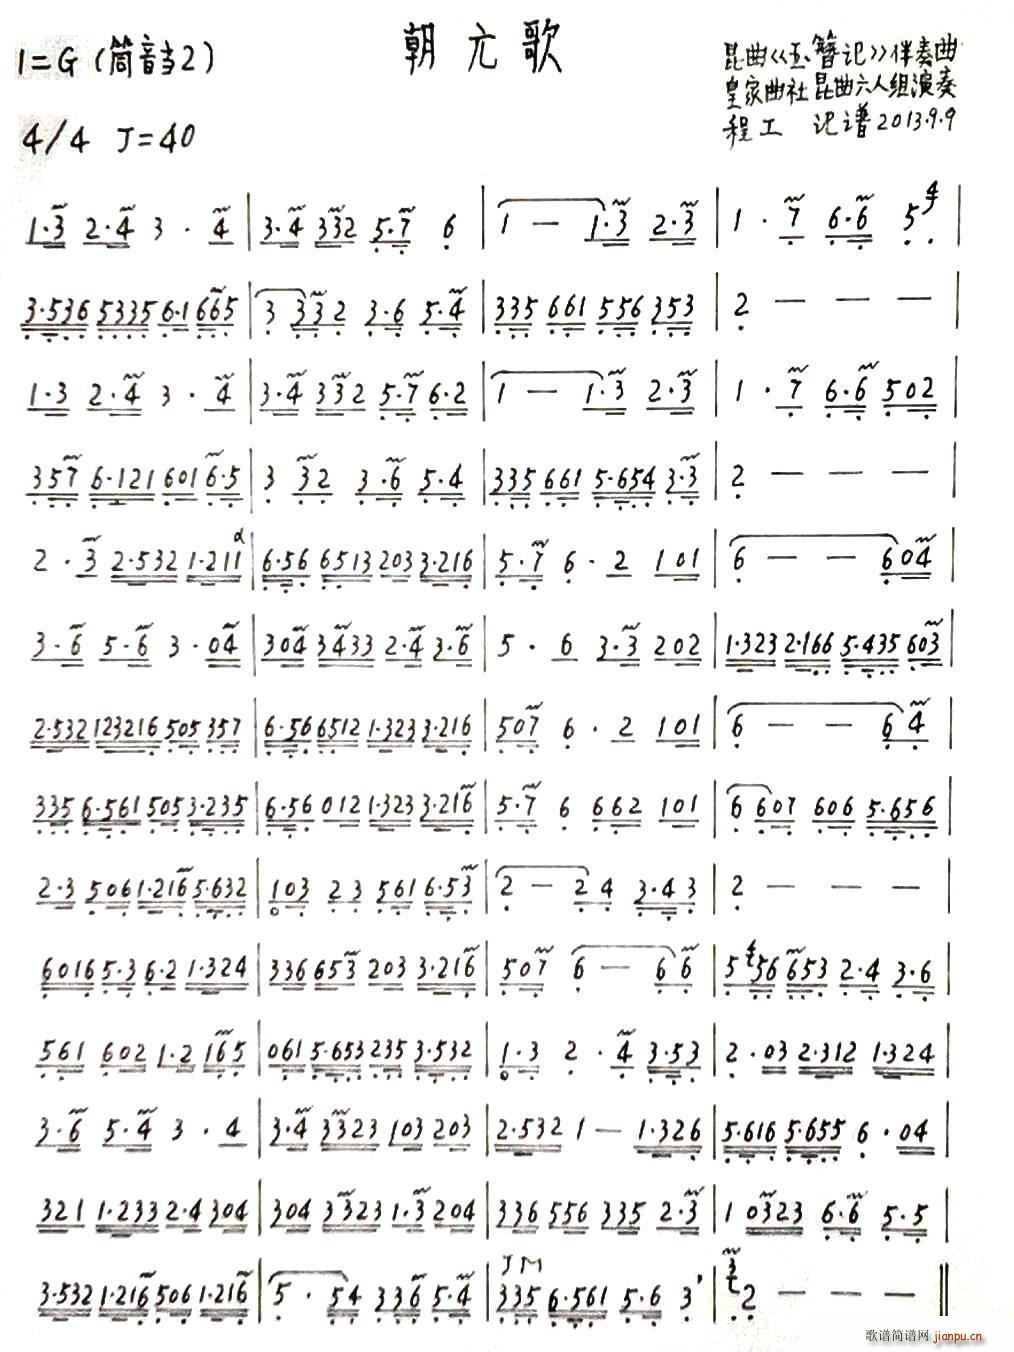 朝元歌
1=G（筒音当2）
昆曲《玉簪记》伴奏曲
皇家曲社 昆曲六人组演奏
4/4 J=40
程工 记谱 2013.9.9
1·3 2·4 3 · 4 | 3·4 332 5·7 6 | 1 — 1·3 2·3 | 1 · 7 6·6 5 4 |
3·536 5335 6·1 665 | 3 332 3·6 5·4 | 335 661 556 353 | 2 — — — |
1·3 2·4 3 · 4 | 3·4 332 5·7 6·2 | 1 — 1·3 2·3 | 1 · 7 6·6 502 |
357 6·121 601 6·5 | 3 32 3·6 5·4 | 335 661 5·654 3·3 | 2 — — — |
2 · 3 2·532 1·211 | 6·56 6513 203 3·216 | 5·7 6 · 2 101 | 6 — — 604 |
3·6 5·6 3 · 04 | 304 3433 2·4 3·6 | 5 · 6 3·3 202 | 1·323 2·166 5·435 603 |
2·532 123216 505 357 | 6·56 6512 1·323 3·216 | 507 6 · 2 101 | 6 — — 64 |
335 6·561 505 3·235 | 6·56 012 1·323 3·216 | 5·7 6 662 101 | 6 607 606 5·656 |
2·3 506 1·216 5·632 | 103 23 561 6·53 | 2 — 24 3·43 | 2 — — — |
6016 5·3 6·2 1·324 | 336 653 203 3·216 | 507 6 — 66 | 5 56 653 2·4 3·6 |
561 602 1·2 165 | 061 5·653 235 3·532 | 1·3 2 · 4 3·53 | 2·03 2·312 1·324 |
3·6 5·4 3 · 4 | 3·4 3323 103 203 | 2·532 1 — 1·326 | 5·616 5·655 6 · 04 |
321 1·233 2·4 304 | 304 3323 1·3 204 | 336 556 335 2·3 | 1 0323 6·6 5·5 |
3·532 1·216 506 1·216 | 5 · 54 336 5·4 | 335 6·561 5·6 3 | 3 2 — — — ‖
歌谱简谱网 jianpu.cn